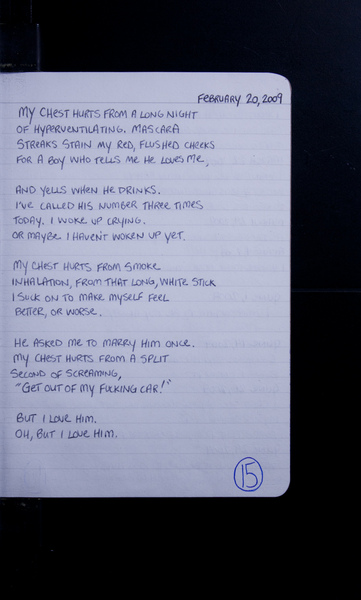 FEBRUARY 20, 2009
MY CHEST HURTS FROM A LONG NIGHT
OF HYPERVENTILATING. MASCARA
STREAKS STAIN MY RED, FLUSHED CHEEKS
FOR A BOY WHO TELLS ME HE LOVES ME,
AND YELLS WHEN HE DRINKS.
I'VE CALLED HIS NUMBER THREE TIMES
TODAY. I WOKE UP CRYING.
OR MAYBE I HAVEN'T WOKEN UP YET.
MY CHEST HURTS FROM SMOKE
INHALATION, FROM THAT LONG, WHITE STICK
I SUCK ON TO MAKE MYSELF FEEL
BETTER, OR WORSE.
HE ASKED ME TO MARRY HIM ONCE.
MY CHEST HURTS FROM A SPLIT
SECOND OF SCREAMING,
"GET OUT OF MY FUCKING CAR!"
BUT I LOVE HIM.
OH, BUT I LOVE HIM.
15